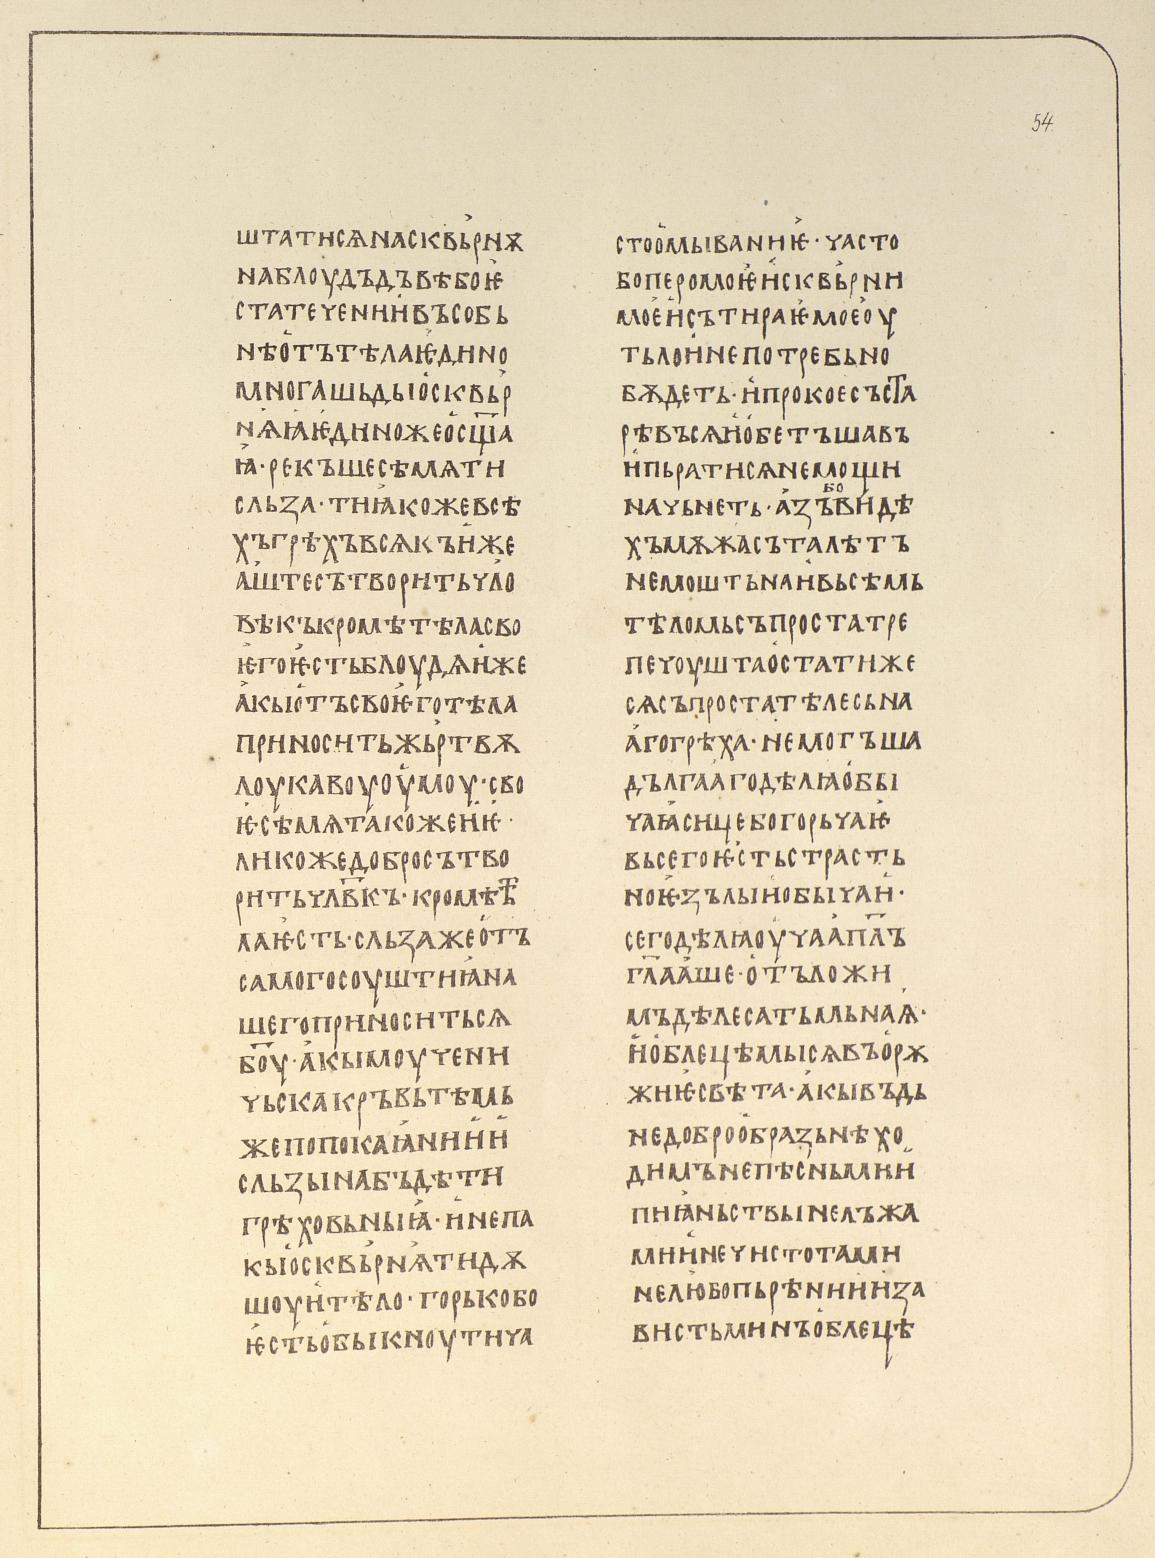 54
штатисѧнасквьрнѫ
наблоудъдъвѣбоѥ
статеченниѝвъсобь
нѣо̑тътѣлаѥдино
многашьдыо̑сквьр
нѧꙗѥдиножео̑сщ҃а
ꙗ·рекъшесѣмѧти
сльꙁа·тиꙗкожевсѣ
хъгрѣхъвсѧкъиже
аштесътворитьчло
вѣкъкромѣтѣласво
ѥгоѥстьблоудѧиже
акыотъсвоѥготѣла
приноситьжьртвѫ
лоукавоуоумоу·сво
ѥсѣмѧтакожеиѥ·
ликожедобросътво
ритьчлв҃къ·кромѣт҃ѣ
лаѥсть·сльꙁажеотъ
самогосоуштиꙗна
шегоприноситьсѧ
бо҃у·акымоучени
чьскакръвьтѣмь
жепопокаꙗнииѝ
сльꙁынабъдѣти
грѣховьныꙗ·инепа
кыосквьрнѧтидѫ
шоуитѣло·горькобо
ѥстьобыкноутича
стоомываниѥ·часто
боперомоѥисквьрни
моеисътираѥмоеоу
тьлоинепотребьно
бѫдеть·ипрокоесъст҃а
рѣвъсѧиобетъшавъ
ипьратисѧнемощи
начьнеть·аꙁъбовидѣ
хъмѫжасъталѣтъ
немоштьнаивьсѣмь
тѣломьсъпростатре
печоуштаостатиже
сѧсъпростатѣлесьна
агогрѣха·немогъша
дългаагодѣлꙗобы
чаꙗсицебогорьчаѥ
вьсегоѥстьстрасть
ноѥꙁълыиобычаи·
сегодѣлꙗоучаапл҃ъ
гл҃ааше·отъложи
мъдѣлесатьмьнаꙗ·
иоблецѣмысѧвъорѫ
жиѥсвѣта·акывъдь
недоброобраꙁьнѣхо
димънепѣсньмии
пиꙗньствынелъжа
миинечистотами
нелюбопьрѣнииꙁа
вистьминъоблецѣ